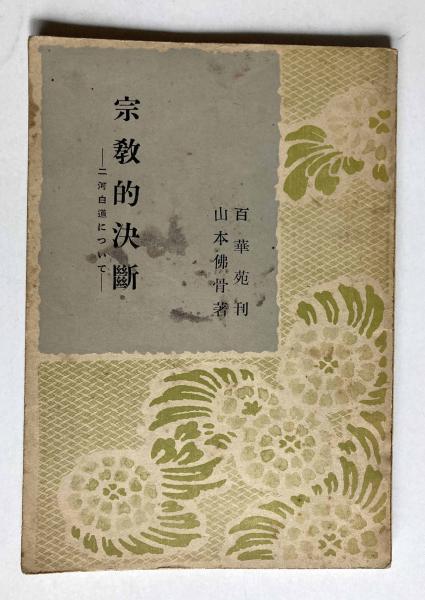 宗教的決斷
――二河白道について――
百華苑刊
山本佛骨著